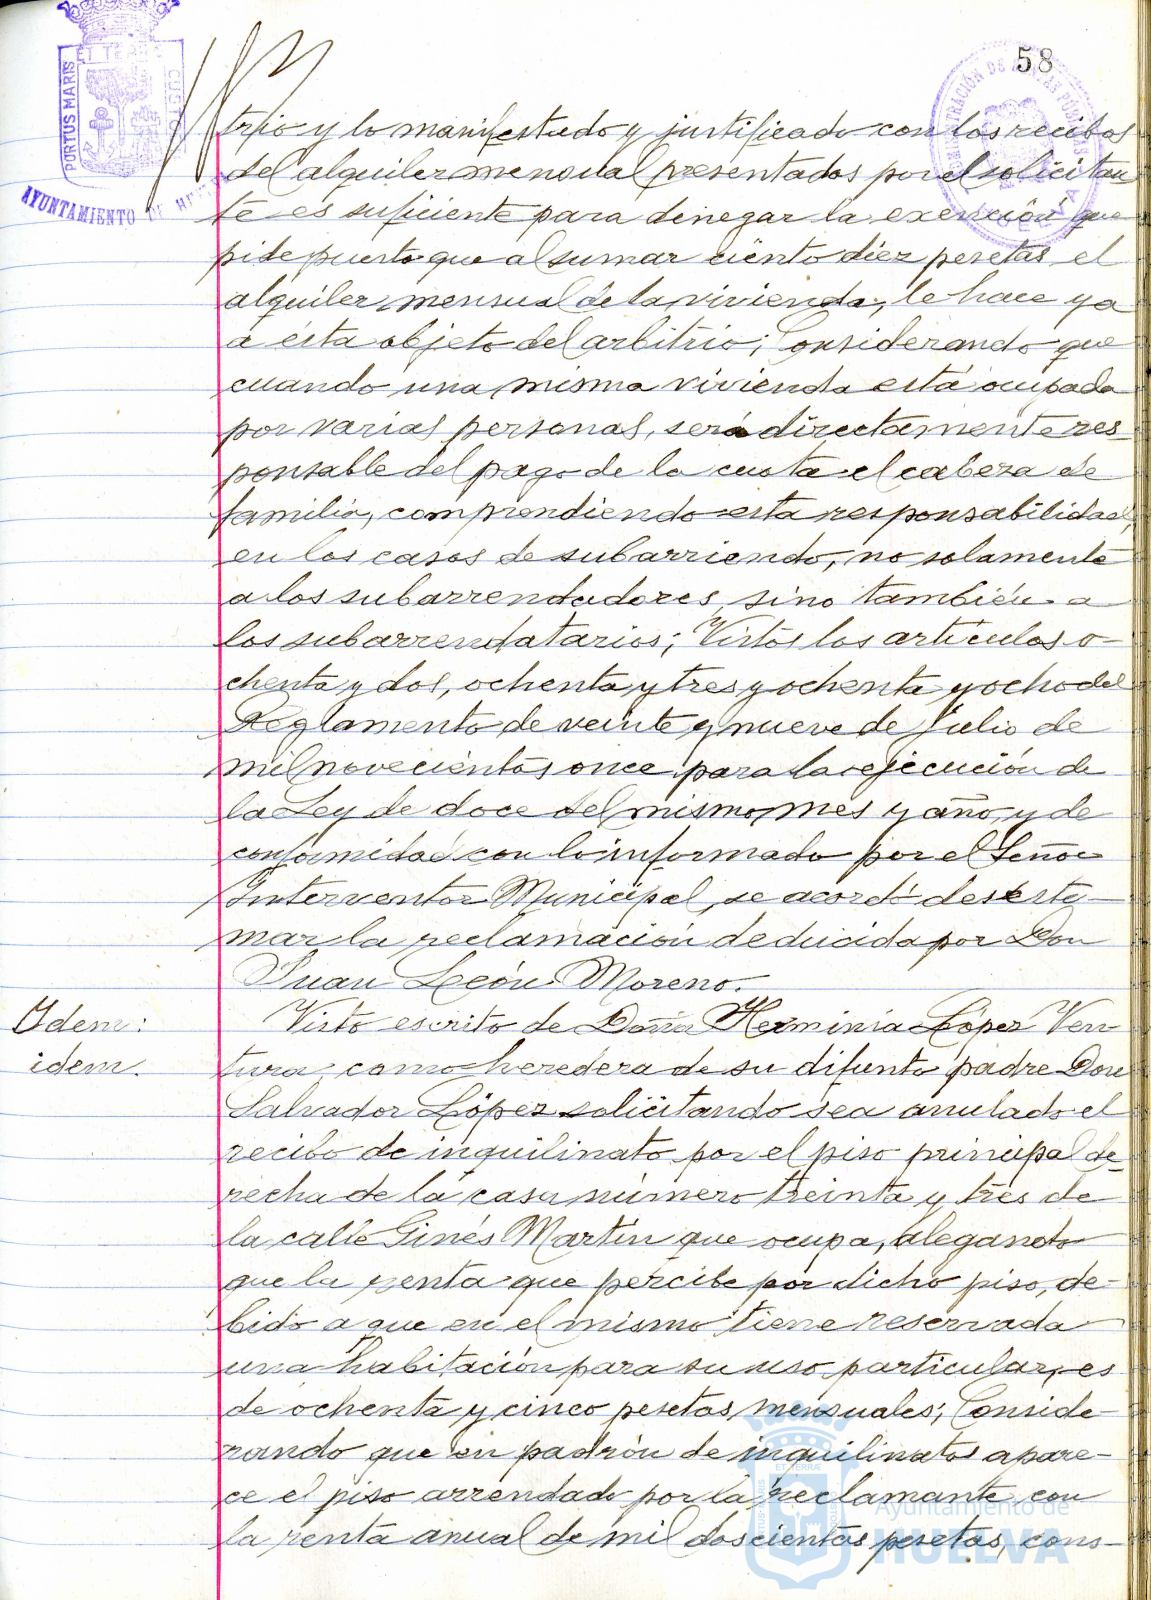 58
PORTUS MARIS ET TERRAE CUSTODIA
AYUNTAMIENTO DE HUELVA
trio y lo manifestado y justificado con los recibos
del alquiler mensual presentados por el solicitan
te es suficiente para denegar la exención que
pide puesto que al sumar ciento diez pesetas el
alquiler mensual de la vivienda, le hace ya
a ésta objeto del arbitrio; Considerando que
cuando una misma vivienda está ocupada
por varias personas, será directamente res-
ponsable del pago de la cuota el cabeza de
familia, comprendiendo esta responsabilidad,
en los casos de subarriendo, no solamente
a los subarrendadores, sino también a
los subarrendatarios; Vistos los artículos o-
chenta y dos, ochenta y tres y ochenta y ocho del
Reglamento de veinte y nueve de Julio de
mil novecientos once para la ejecución de
la Ley de doce del mismo mes y año, y de
conformidad con lo informado por el Señor
Interventor Municipal, se acordó desesti-
mar la reclamación deducida por Don
Juan León Moreno.
Idem:
idem.
Visto escrito de Doña Herminia López Ven
tura, como heredera de su difunto padre Don
Salvador López solicitando sea anulado el
recibo de inquilinato por el piso principal de-
recha de la casa número treinta y tres de
la calle Ginés Martín que ocupa, alegando
que la renta que percibe por dicho piso, de-
bido a que en el mismo tiene reservada
una habitación para su uso particular, es
de ochenta y cinco pesetas mensuales; Conside-
rando que en padrón de inquilinatos apare-
ce el piso arrendado por la reclamante con
la renta anual de mil doscientas pesetas, cons-
Ayuntamiento de
HUELVA